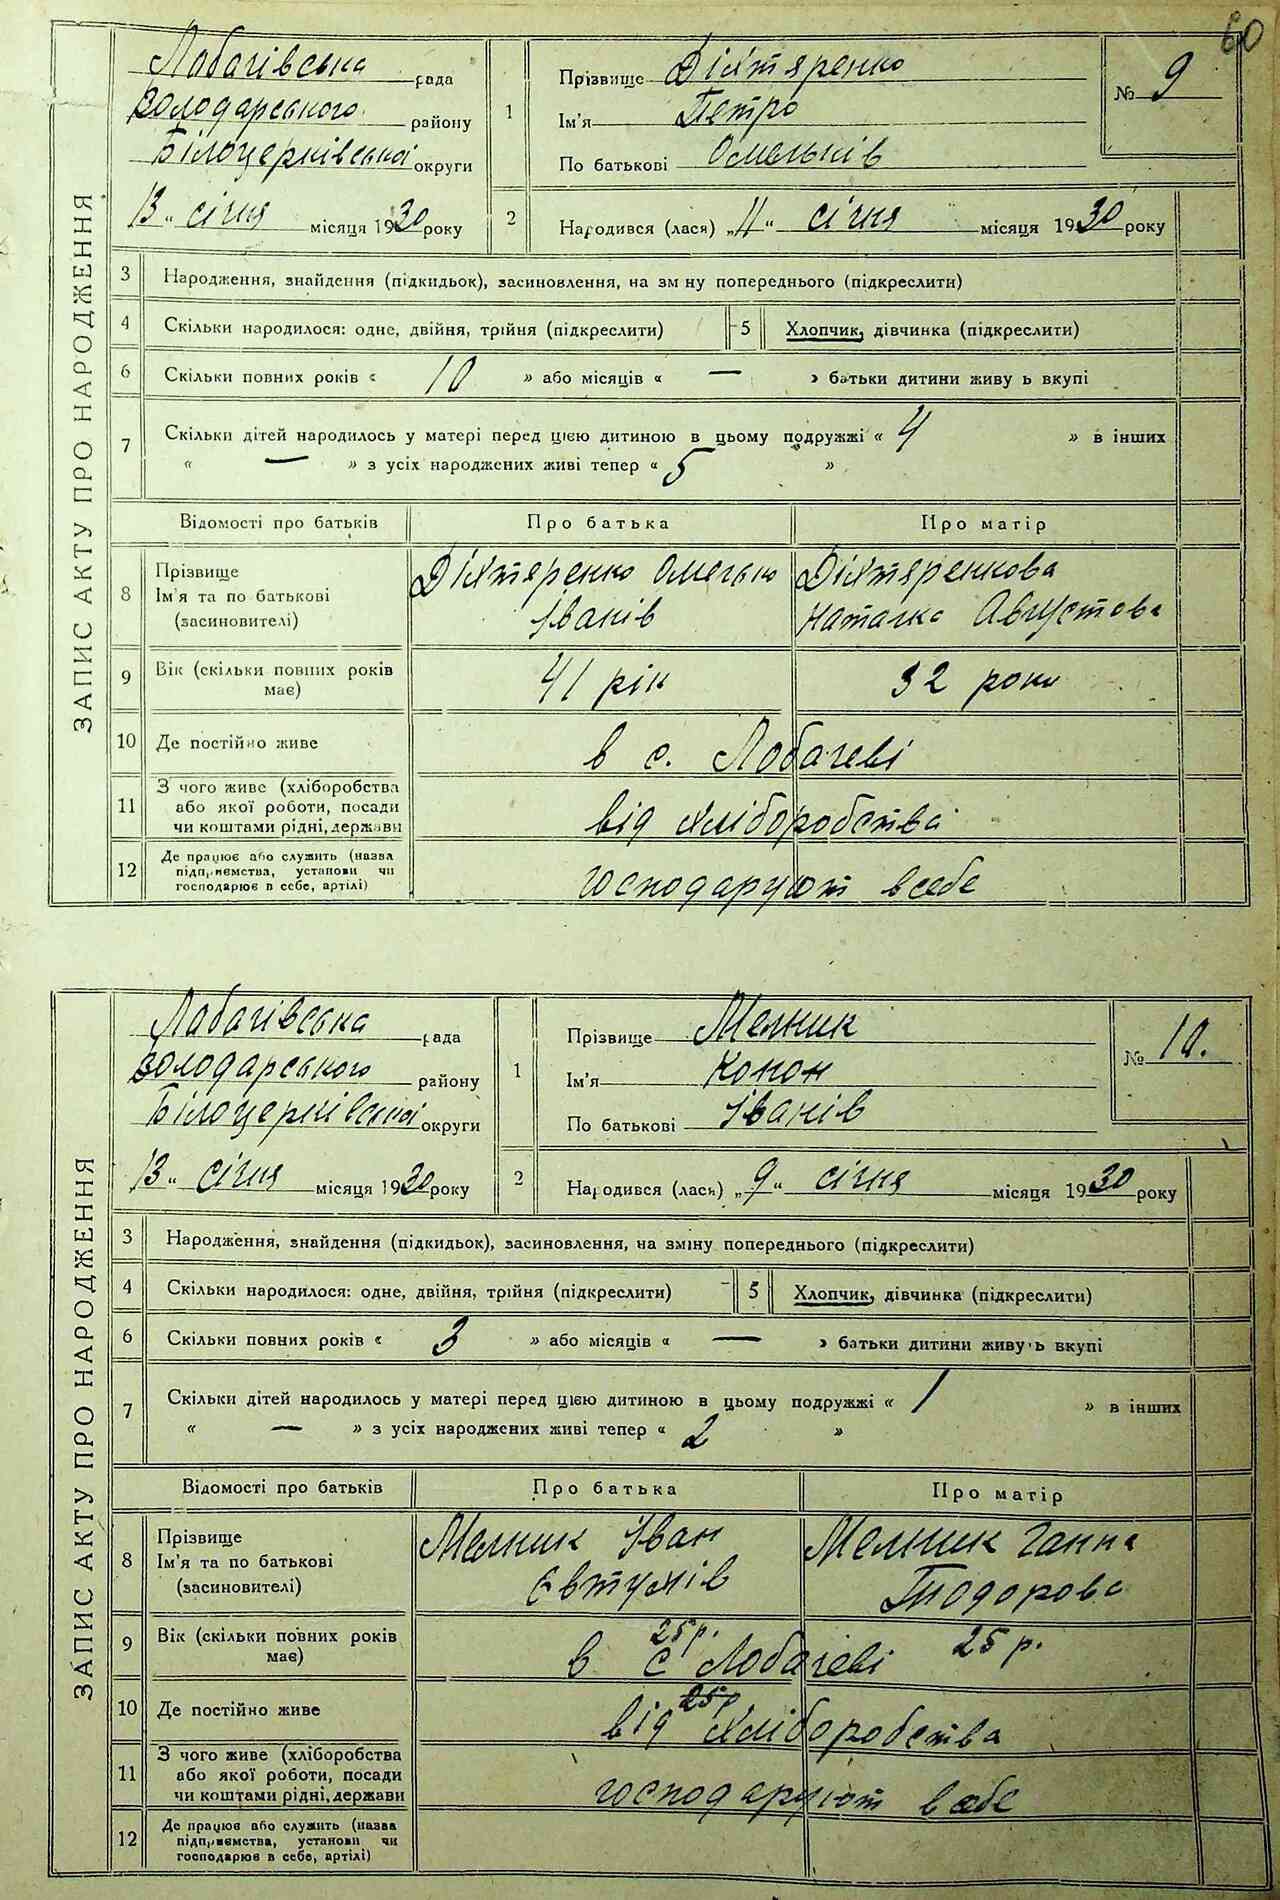 60
ЗАПИС АКТУ ПРО НАРОДЖЕННЯ
Лобачівська рада
Володарського району
Білоцерківської округи
13 „ січня місяця 1930 року
1 Прізвище Діхтяренко
Ім'я Петро
По батькові Омельків
№ 9
2 Народився (лася) „11“ січня місяця 1930 року
3 Народження, знайдення (підкидьок), засиновлення, на зміну попереднього (підкреслити)
4 Скільки народилося: одне, двійня, трійня (підкреслити) 5 Хлопчик, дівчинка (підкреслити)
6 Скільки повних років « 10 » або місяців « — » батьки дитини живуть вкупі
7 Скільки дітей народилось у матері перед цією дитиною в цьому подружжі « 4 » в інших
« — » з усіх народжених живі тепер « 5 »
Відомості про батьків Про батька Про матір
8 Прізвище Ім'я та по батькові (засиновителі) Діхтяренко Омелько Іванів Діхтяренкова Наталка Августова
9 Вік (скільки повних років має) 41 рік 32 роки
10 Де постійно живе в с. Лобачеві
11 З чого живе (хліборобства або якої роботи, посади чи коштами рідні, держави від хліборобства
12 Де працює або служить (назва підприємства, установи чи господарює в себе, артілі) господарують в себе
ЗАПИС АКТУ ПРО НАРОДЖЕННЯ
Лобачівська рада
Володарського району
Білоцерківської округи
13 „ січня місяця 1930 року
1 Прізвище Мельник
Ім'я Конон
По батькові Іванів
№ 10.
2 Народився (лася) „9“ січня місяця 1930 року
3 Народження, знайдення (підкидьок), засиновлення, на зміну попереднього (підкреслити)
4 Скільки народилося: одне, двійня, трійня (підкреслити) 5 Хлопчик, дівчинка (підкреслити)
6 Скільки повних років « 3 » або місяців « — » батьки дитини живуть вкупі
7 Скільки дітей народилось у матері перед цією дитиною в цьому подружжі « 1 » в інших
« — » з усіх народжених живі тепер « 2 »
Відомості про батьків Про батька Про матір
8 Прізвище Ім'я та по батькові (засиновителі) Мельник Іван Євтухів Мельник Ганна Тодорова
9 Вік (скільки повних років має) 25 р. 25 р.
в с Лобачеві
10 Де постійно живе 25 р
від хліборобства
11 З чого живе (хліборобства або якої роботи, посади чи коштами рідні, держави господарують в себе
12 Де працює або служить (назва підприємства, установи чи господарює в себе, артілі)